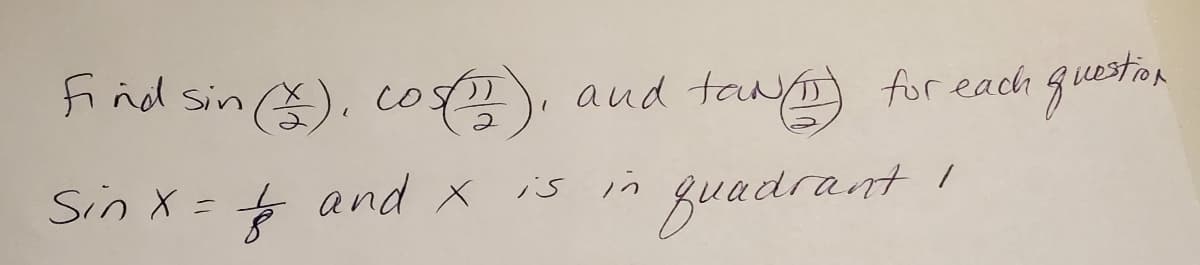 Find sin (x/2), cos(π/2), and tan(π/2) for each question
Sin x = 1/8 and x is in quadrant 1